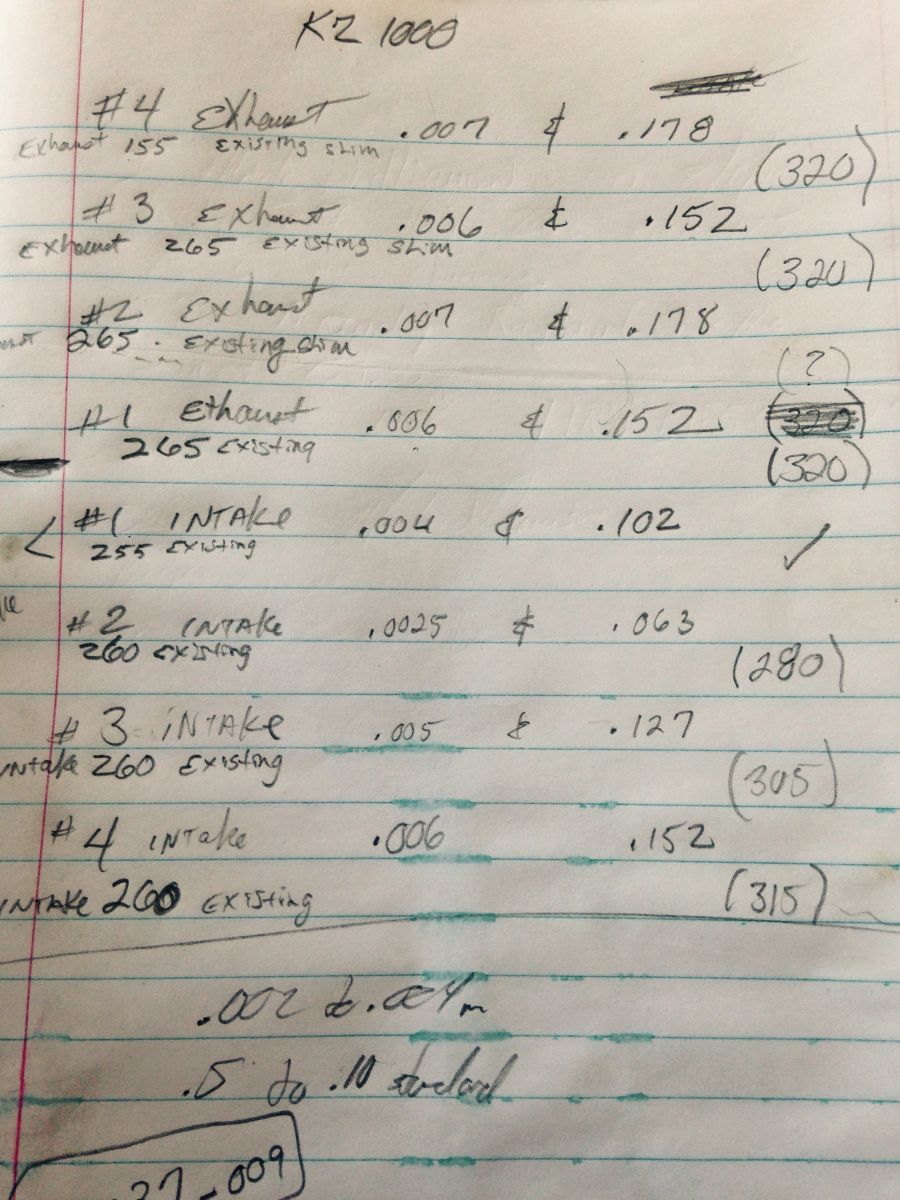 KZ 1000
#4 Exhaust .007 & .178
Exhaust 155 Existing shim
(320)
#3 Exhaust .006 & .152
Exhaust 265 Existing shim
(320)
#2 Exhaust .007 & .178
265 Existing shim
(?)
#1 Exhaust .006 & .152 (320)
265 Existing
(320)
#1 INTAke .004 & .102
255 Existing ✓
#2 INTAke .0025 & .063
260 Existing
(280)
#3 INTAKe .005 & .127
INtake 260 Existing
(305)
#4 INTake .006 .152
INTAKe 260 Existing (315)
.002 to .004
.5 to .10 standard
27-009